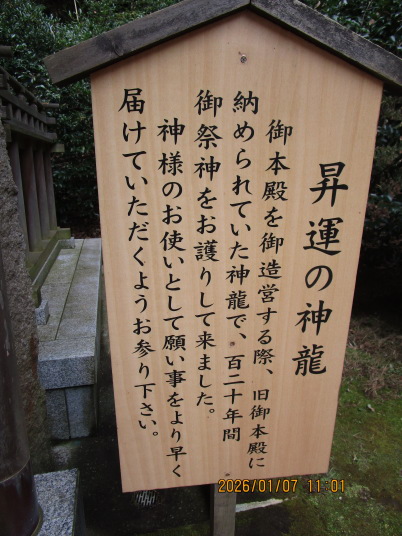 昇運の神龍
御本殿を御造営する際、旧御本殿に
納められていた神龍で、百二十年間
御祭神をお護りして来ました。
神様のお使いとして願い事をより早く
届けていただくようお参り下さい。
2026/01/07 11:01